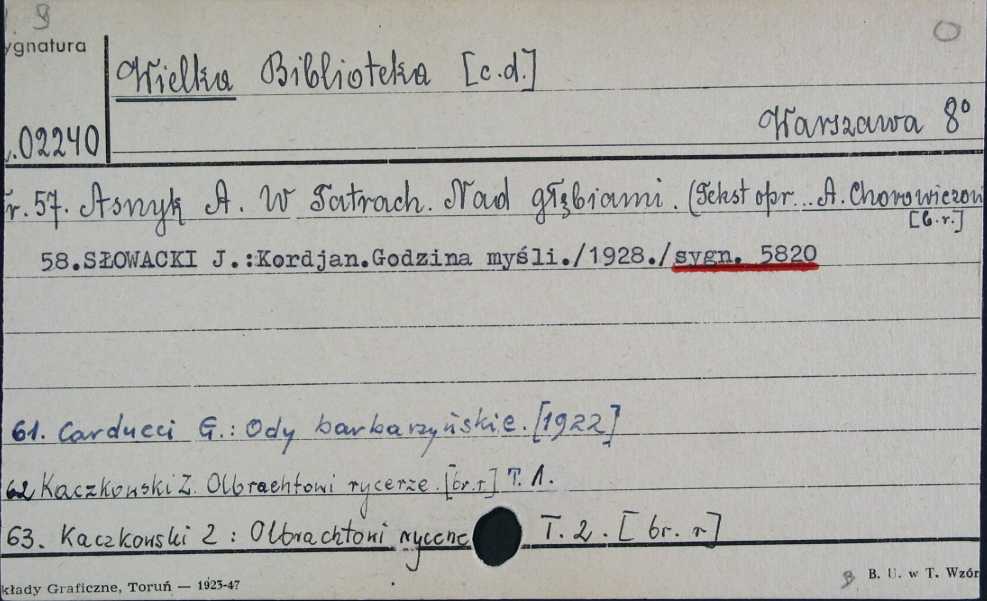 9
ygnatura
Wielka Biblioteka [c.d.]
Warszawa 8°
.02240
r. 57. Asnyk A. W Tatrach. Nad głębiami. (Tekst opr... A. Chorowiczow
[b.r.]
58.SŁOWACKI J.:Kordjan.Godzina myśli./1928./sygn. 5820
61. Carducci G.: Ody barbarzyńskie. [1922]
62 Kaczkowski Z. Olbrachtowi rycerze. [br.r] T. 1.
63. Kaczkowski Z : Olbrachtowi rycerze T. 2. [br. r]
kłady Graficzne, Toruń — 1923-47
B. U. w T. Wzór